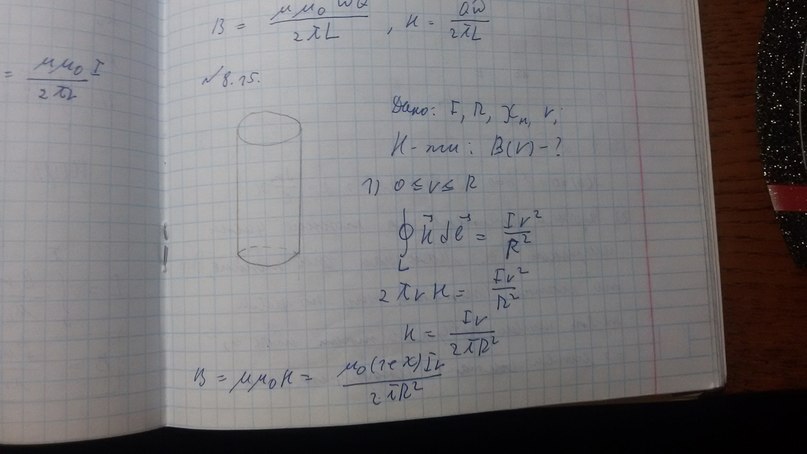 B = μμ₀ωQ / 2πL , H = Qω / 2πL
= μμ₀I / 2πr
№8.15.
Дано: I, R, χₘ, r;
Н-ти: B(r) - ?
1) 0 ≤ r ≤ R
∮_L H⃗ dℓ⃗ = Ir² / R²
2πrH = Ir² / R²
H = Ir / 2πR²
B = μμ₀H = μ₀(1+χ)Ir / 2πR²